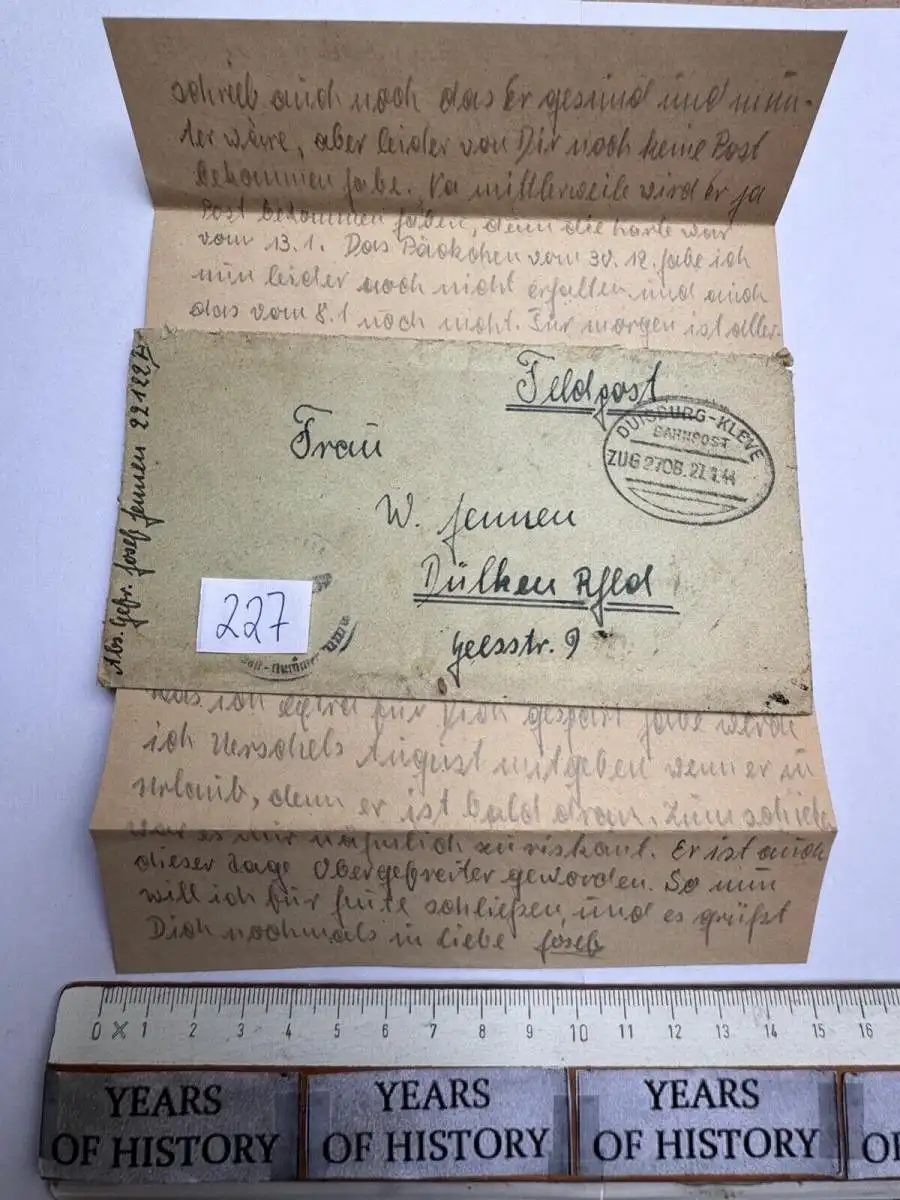 schrieb auch noch das Er gesund und mun-
ter wäre, aber leider von Dir noch keine Post
bekommen habe. Na mittlerweile wird er ja
Post bekommen haben, denn die Karte war
vom 13.1. Das Päckchen vom 30.12. habe ich
nun leider noch nicht erhalten und auch
das vom 8.1 noch nicht. Für morgen ist aller-
Abs. Gefr. Josef Jennen 22122A
Feldpost
DUISBURG-KLEVE
BAHNPOST
ZUG 2706. 27.1.44
Frau
W. Jennen
Dülken Rhld
Geesstr. 9
227
was ich extra für Dich gespart habe werde
ich Herschels August mitgeben wenn er in
Urlaub, denn er ist bald dran. Zum schicken
war es mir nähmlich zu riskant. Er ist auch
dieser Tage Obergefreiter geworden. So nun
will ich für heute schließen, und es grüßt
Dich nochmals in liebe Josef
0 1 2 3 4 5 6 7 8 9 10 11 12 13 14 15 16
YEARS OF HISTORY
YEARS OF HISTORY
YEARS OF HISTORY